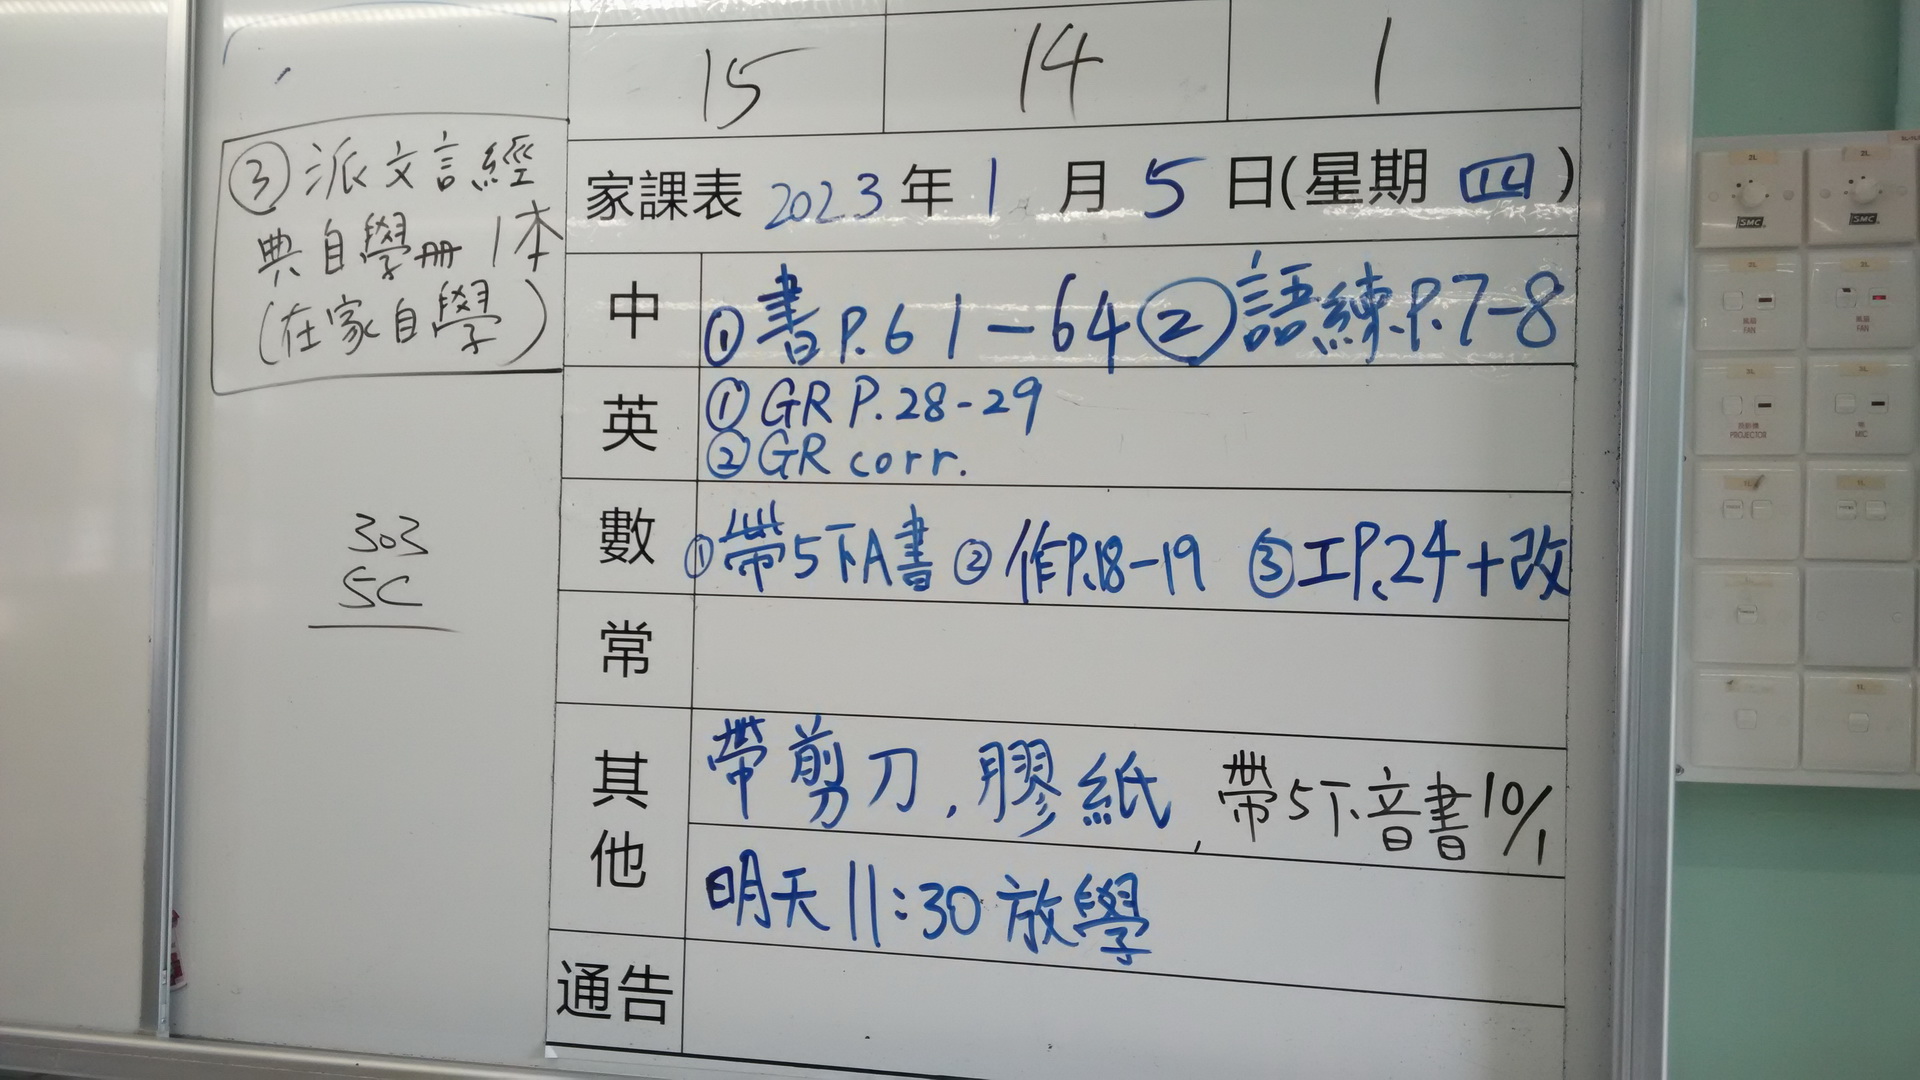 15 14 1
③派文言經
典自學册1本
(在家自學)
家課表 2023年1月5日(星期四)
中 ①書P.61-64②語練.P.7-8
英 ①GR P.28-29
②GR corr.
數 ①帶5下A書 ②作P.18-19 ③工P.24+改
303
5C
常
其他 帶剪刀,膠紙,帶5下音書10/1
明天11:30放學
通告
2L 2L
SMC SMC
FAN FAN
PROJECTOR MIC